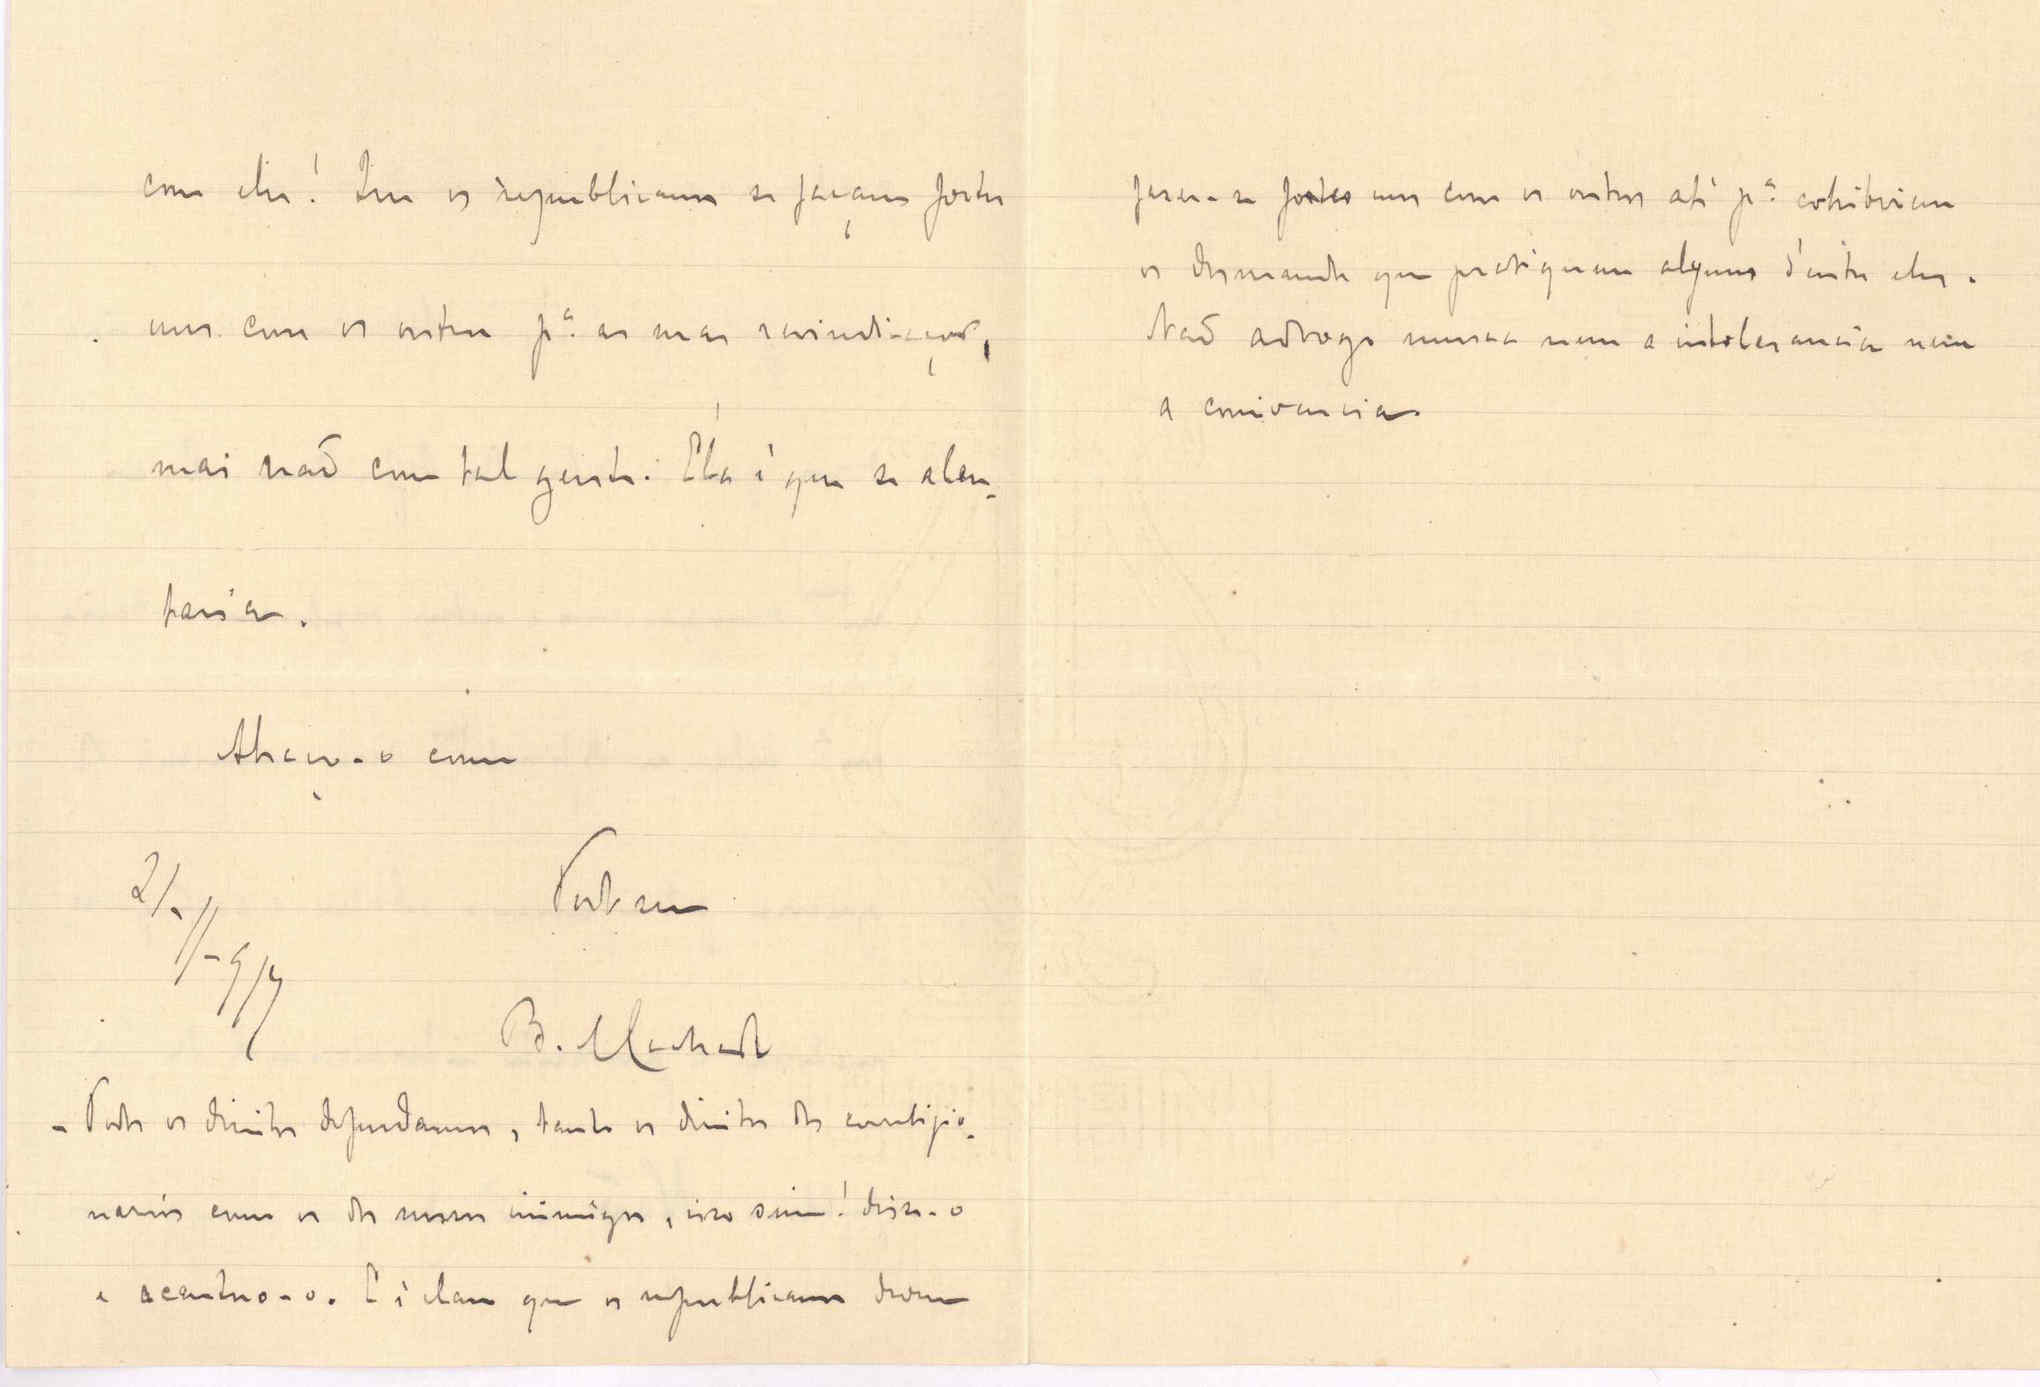 com eles! Que os republicanos se façam fortes
uns com os outros p.ª as suas reivindicações,
mas não com tal gente. Ela é que se alen-
taria.
Abraço-o com
Todo seu
21-11-917
B. Machado
- Todos os direitos defendamos, tanto os direitos dos correligio-
narios como os dos nossos inimigos, isso sim! disse-o
e acentuo-o. E é claro que os republicanos devem
fazer-se fortes uns com os outros até p.ª cohibirem
os desmandos que pratiquem alguns d'entre eles.
Não advogo nunca nem a intolerancia nem
a conivencia